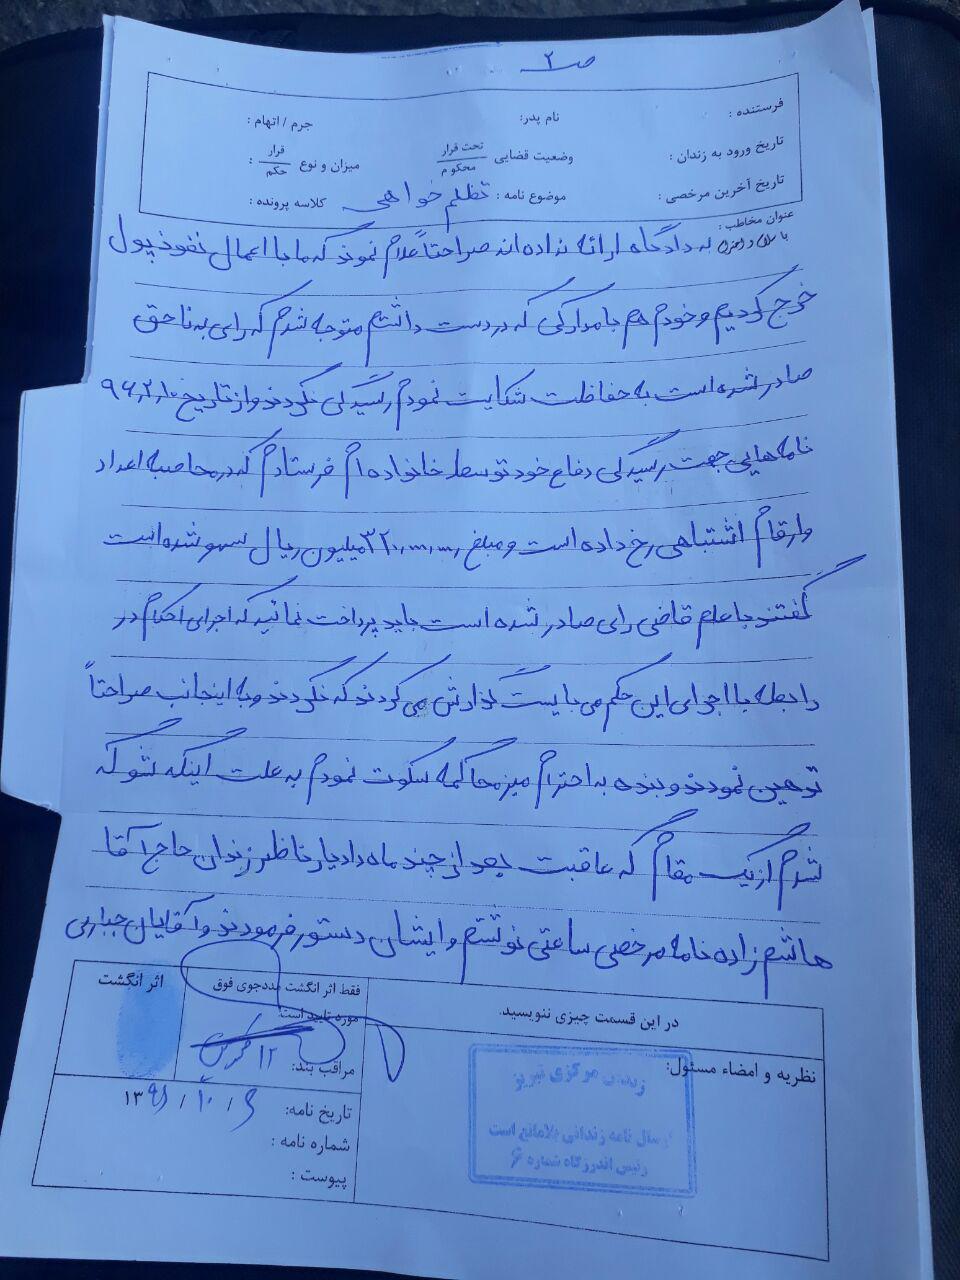 ص ۲
فرستنده : نام پدر: جرم / اتهام :
تاریخ ورود به زندان : وضعیت قضایی تحت قرار / محکوم میزان و نوع قرار / حکم :
تاریخ آخرین مرخصی : موضوع نامه : تظلم خواهی کلاسه پرونده :
عنوان مخاطب :
با سلام و احترام به دادگاه ارائه نداده اند صراحتاً اعلام نمودند که ما با اعمال نفوذ پول
خرج کردیم و خودم هم با مدارکی که در دست داشتم متوجه شدم که رای به ناحق
صادر شده است به حفاظت شکایت نمودم رسیدگی نکردند و از تاریخ ۹۶،۲،۱۰
نامه هایی جهت رسیدگی دفاع خود توسط خانواده ام فرستادم که در محاصبه اعداد
وارقام اشتباهی رخ داده است و مبلغ ۳۲۰،۰۰۰،۰۰۰ میلیون ریال سهو شده است
گفتند با علم قاضی رای صادر شده است باید پرداخت نمائید که اجرای احکام در
رابطه با اجرای این حکم می بایست گزارش می کردند که نکردند و به اینجانب صراحتاً
توهین نمودند و بنده به احترام میز محاکمه سکوت نمودم به علت اینکه شوکه
شدم از یک مقام که عاقبت بعد از چند ماه دادیار ناظر زندان حاج آقا
هاشم زاده نامه مرخصی ساعتی نوشتم و ایشان دستور فرمودند و آقایان جباری
در این قسمت چیزی ننویسید.
نظریه و امضاء مسئول:
زندان مرکزی تبریز
ارسال نامه زندانی بلامانع است
رئیس اندرزگاه شماره ۶
فقط اثر انگشت مددجوی فوق
مورد تایید است.
مراقب بند: ۱۲
تاریخ نامه: ۶ / ۱۰ / ۱۳۹۸
شماره نامه :
پیوست :
اثر انگشت